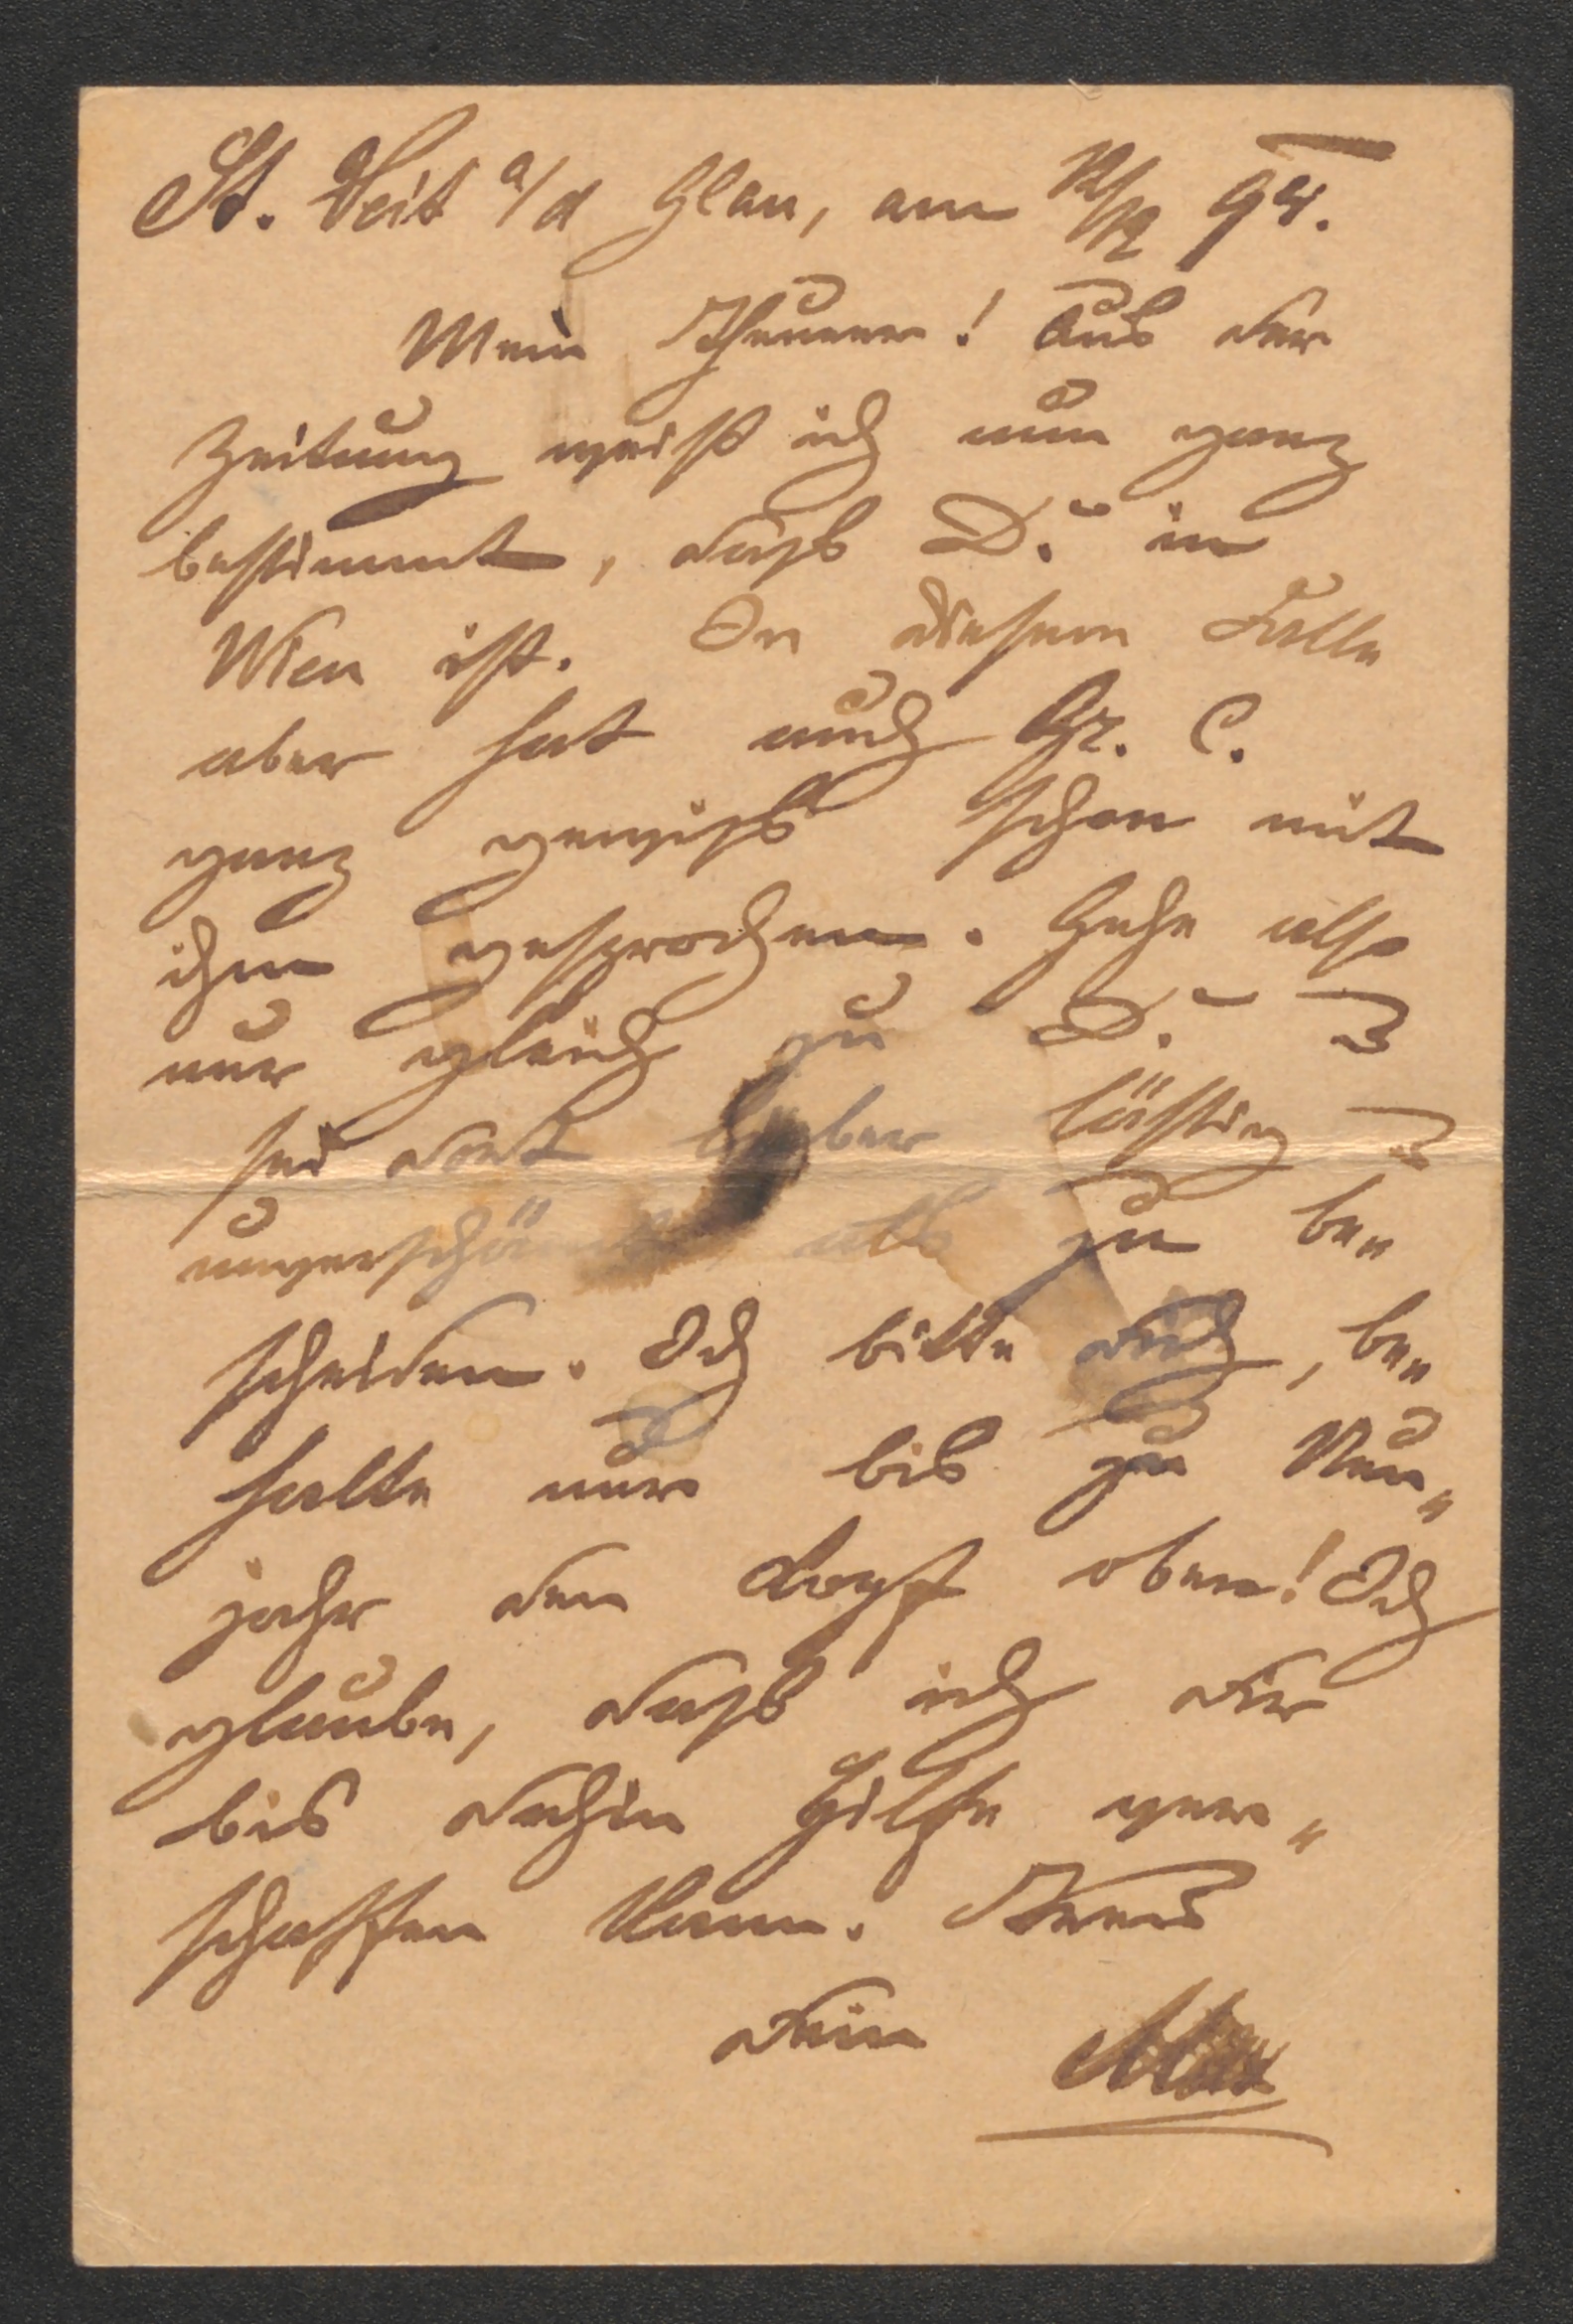 St. Veit a/d Glan, am 12/12 94.
Mein Theurer! Aus der
Zeitung weiß ich nun ganz
bestimmt, dass D. in
Wien ist. In diesem Falle
aber hat auch Gr. C.
ganz gewiss schon mit
ihm gesprochen. Gehe also
nur gleich zu D. &
sei dort lieber lästig &
unverschämt als zu be„
scheiden. Ich bitte dich, be„
halte nur bis zu Neu„
jahr den Kopf oben! Ich
glaube, dass ich dir
bis dahin Hilfe ver„
schaffen kann. Treu
dein Max